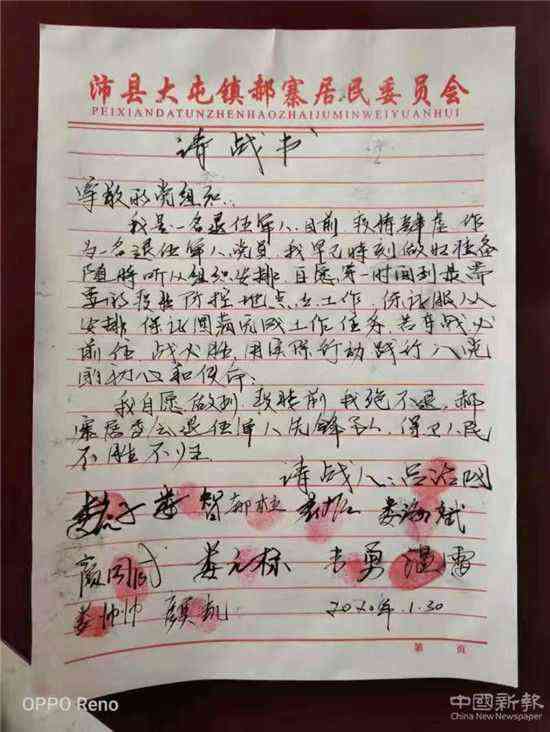 沛县大屯镇郝寨居民委员会
PEIXIANDATUNZHENHAOZHAIJUMINWEIYUANHUI
请战书
尊敬的党组织:
我是一名退伍军人,目前疫情肆虐,作
为一名退伍军人党员,我早已时刻做好准备
随时听从组织安排,自愿第一时间到最需
要的疫情防控地点去工作,保证服从
安排,保证圆满完成工作任务,若有战必
前往,战必胜,用实际行动践行入党
的初心和使命。
我自愿做到:疫情前我绝不退,郝
寨居委会退伍军人先锋队,保卫人民
不胜不归
请战人:吕治国
智
勇 温雷
颜凯 2020年.1.30
第 页
OPPO Reno
中國新報
China New Newspaper